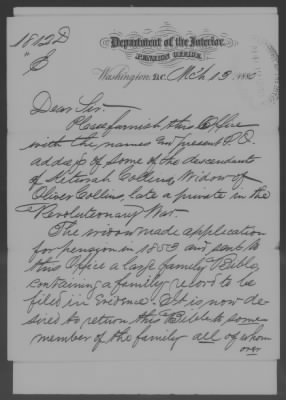 1812 D
" C
Department of the Interior,
PENSION OFFICE,
Washington, D.C. Mch 13, 188
Dear Sir:
Please furnish this Office
with the names and present P.O.
address of some of the descendants
of Collins, Widow of
Oliver Collins, late a private in the
Revolutionary War.
The widow made application
for pension in 1853 and sent to
this Office a large family Bible,
containing a family record to be
filed in evidence. It is now de-
sired to return this Bible to some
member of the family all of whom
over